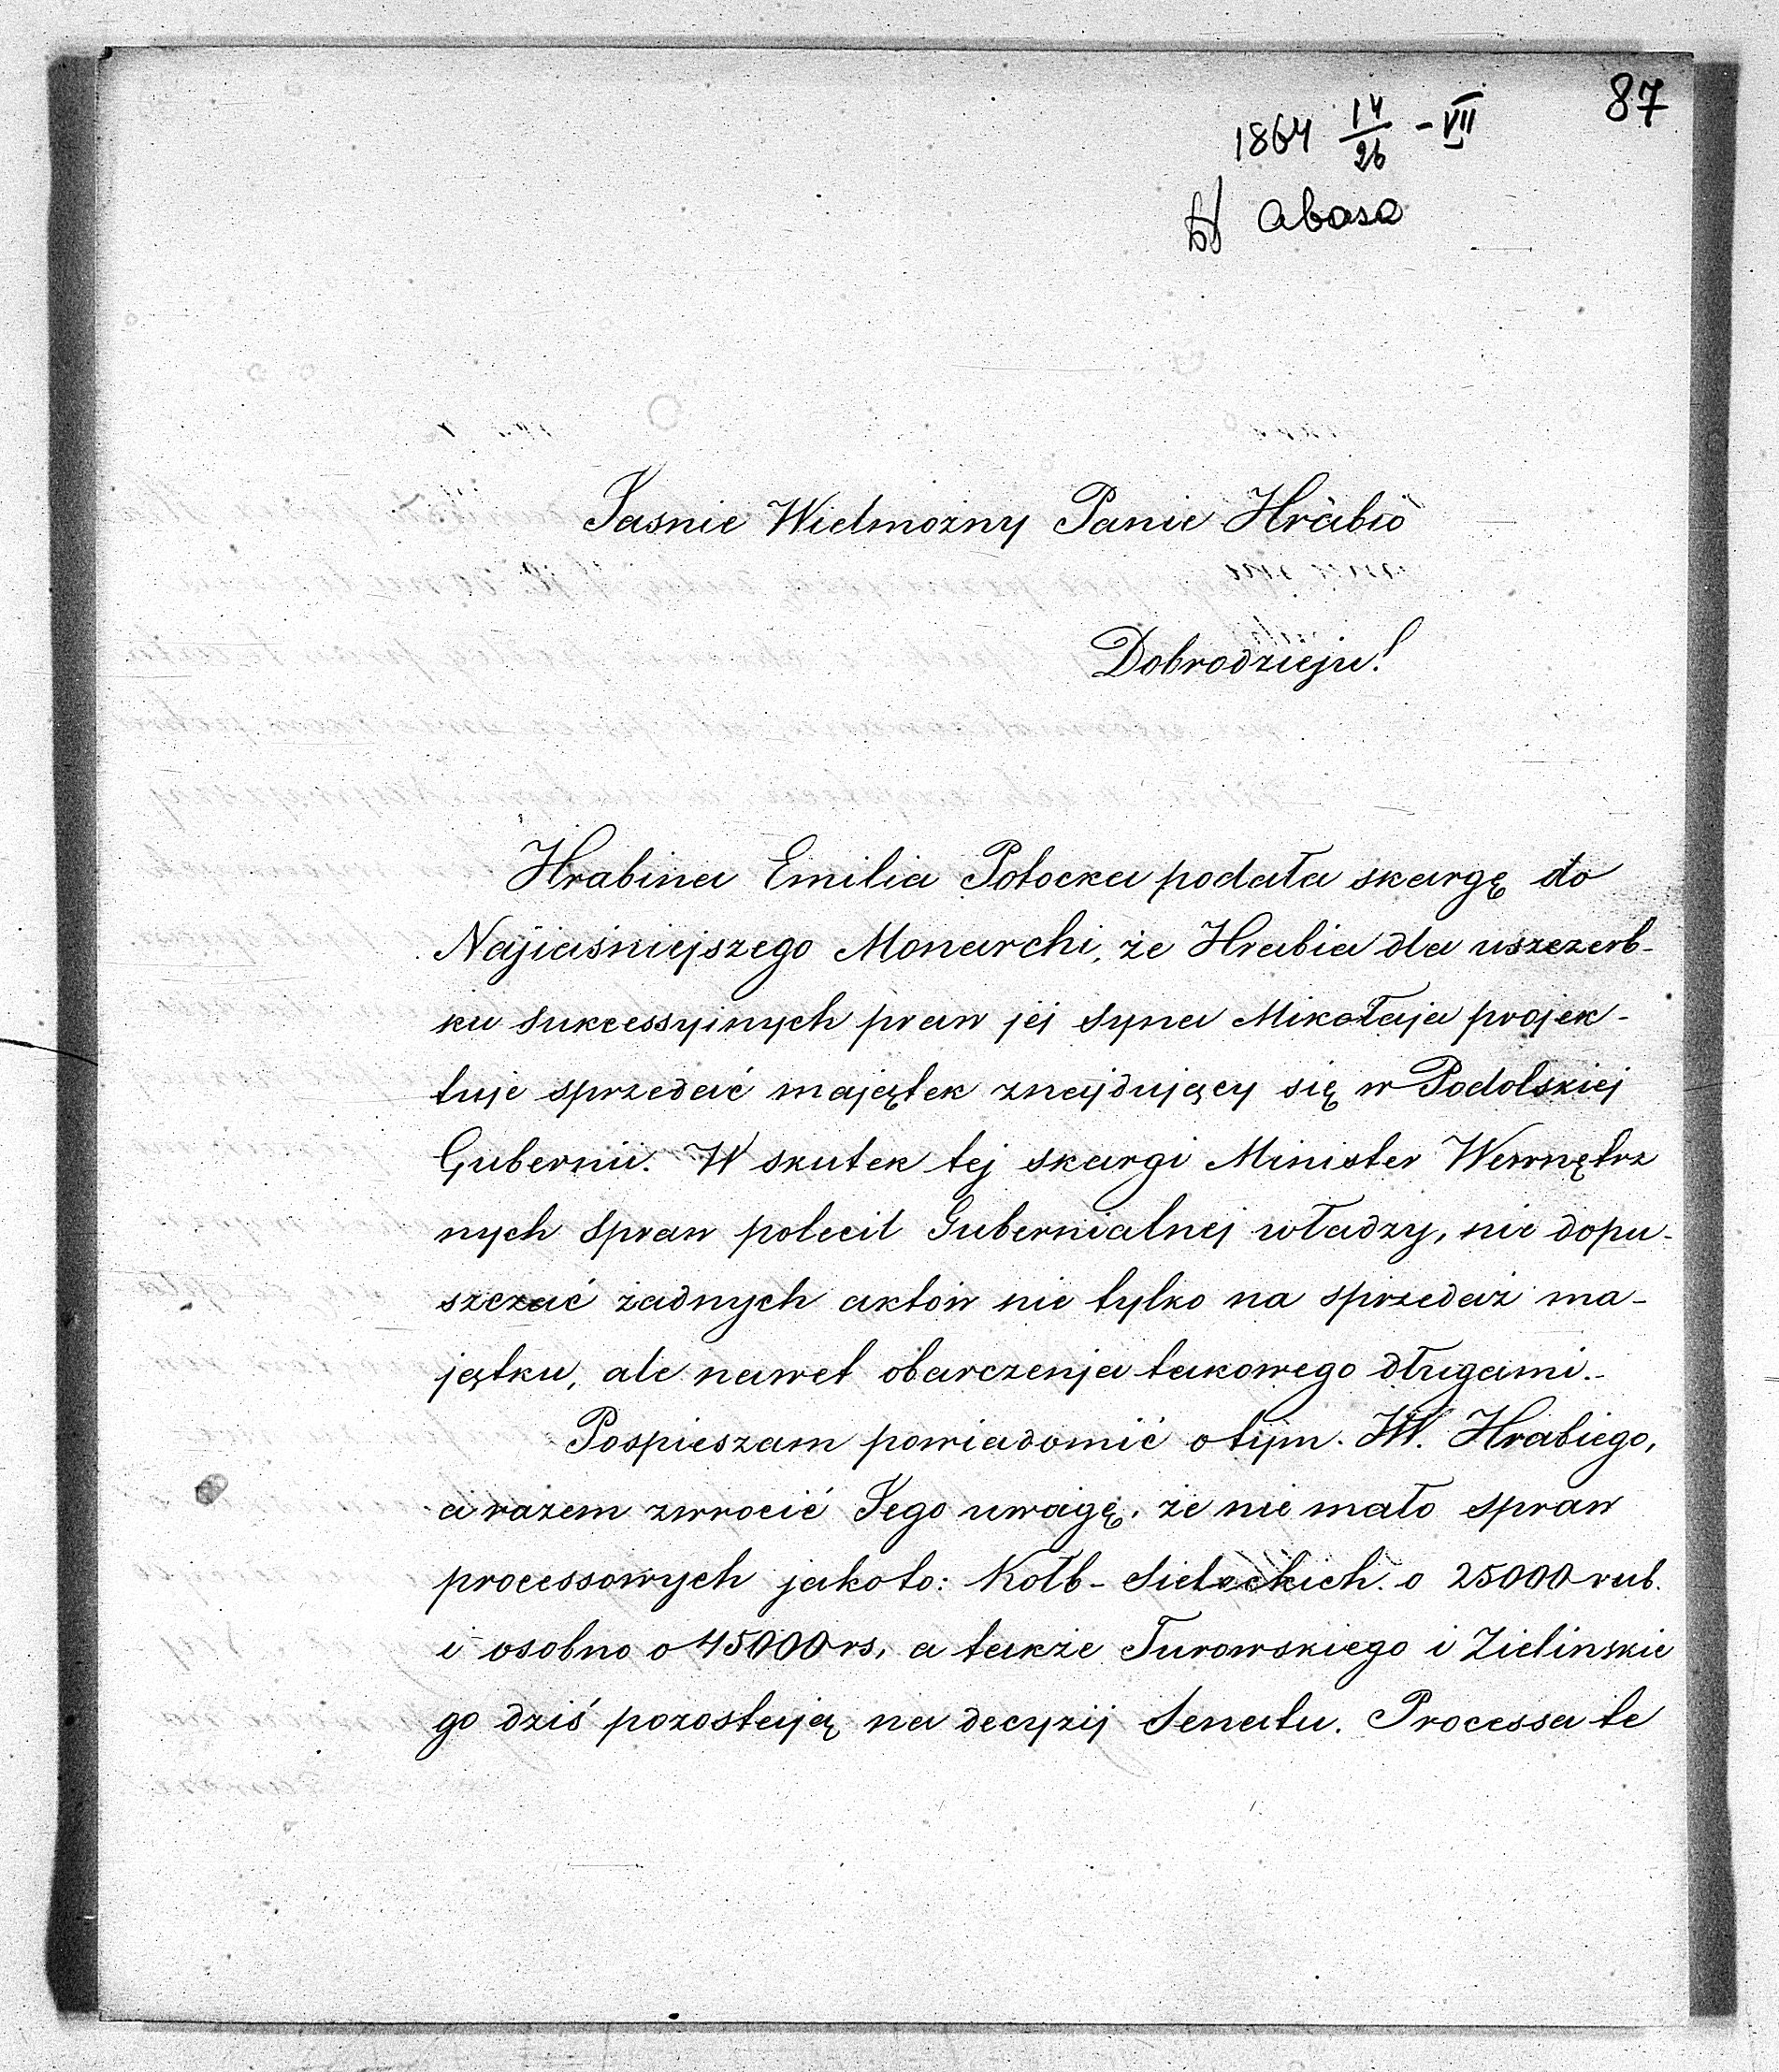 87
1864 14/26 - VII
Abasa
Jasnie Wielmożny Panie Hrabio
Dobrodzieju!
Hrabina Emilia Potocka podała skargę do
Najjaśniejszego Monarchi, że Hrabia dla uszczerb-
ku sukcessyinych praw jej syna Mikołaja projek-
tuje sprzedać majątek znajdujący się w Podolskiej
Gubernii. W skutek tej skargi Minister Wewnętrz
nych spraw polecił Gubernialnej władzy, nie dopu-
szczać żadnych aktów nie tylko na sprzedaż ma-
jątku, ale nawet obarczenja takowego długami.-
Pospieszam powiadomić o tym JW. Hrabiego,
a razem zwrocić Jego uwagę, że nie mało spraw
processowych jakoto: Kołb-Sieleckich o 25000 rub.
i osobno o 45000 rs, a także Turowskiego i Zielinskie
go dziś pozostają na decyzij Senatu. Processa te